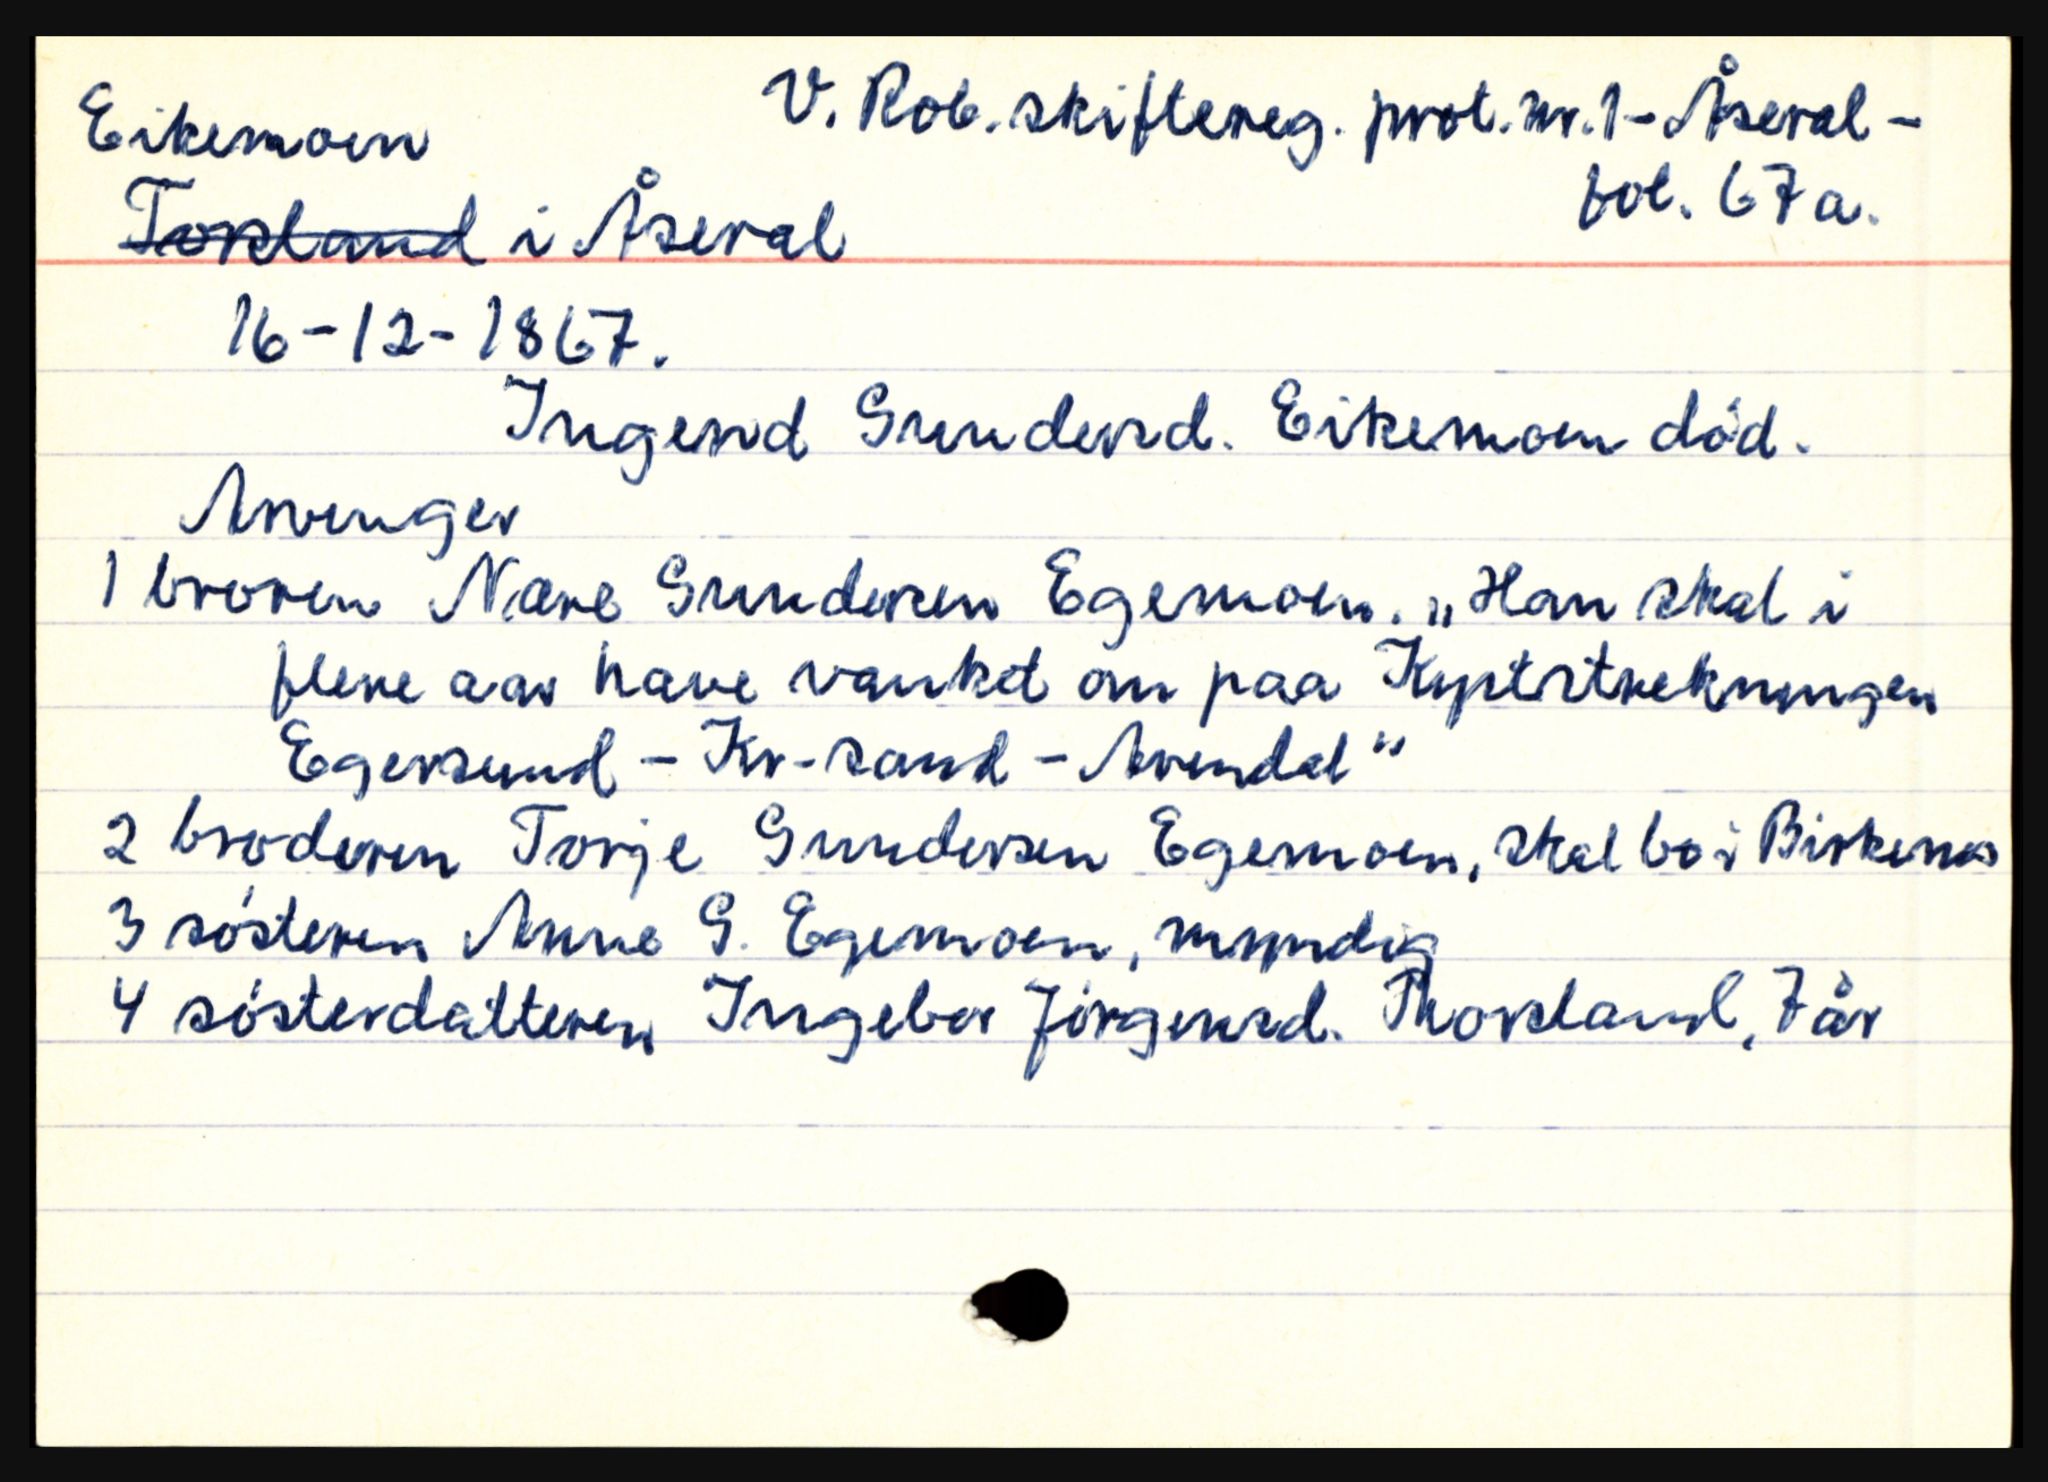 Eikemoen
V. Rob. skiftereg. prot. nr. 1 - Åseral -
fol. 67a.
Toreland i Åseral
16-12-1867.
Ingerd Gundersd. Eikemoen död.
Arvinger
1 broren Nære Gundersen Egemoen. „Han skal i
flere aar have vanket om paa Kyststrekningen
Egersund - Kr-sand - Arendal"
2 broderen Torje Gundersen Egemoen, skal bo i Birkenes
3 sösteren Anne G. Egemoen, myndig
4 sösterdatteren Ingebor Jörgensd. Thorsland, 7 år